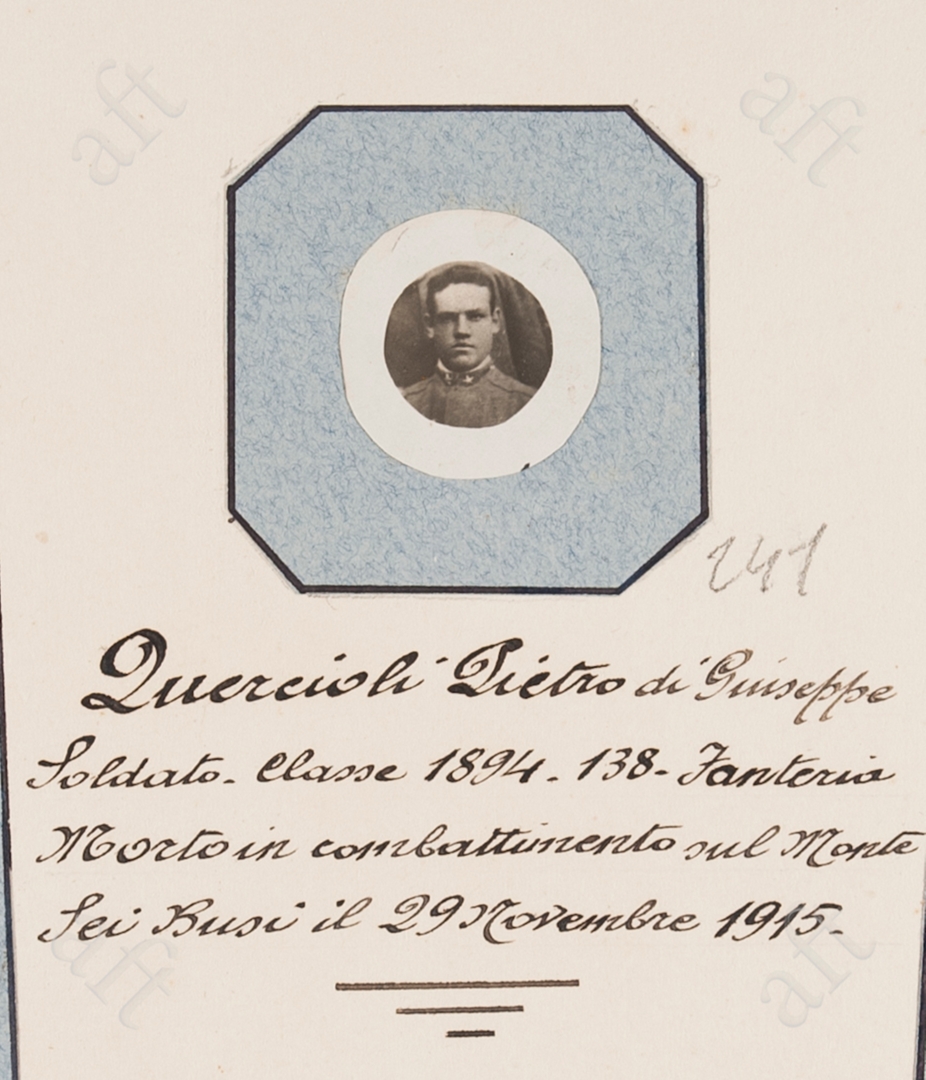 aft
aft
241
Quercioli Pietro di Giuseppe
Soldato - Classe 1894 - 138 - Fanteria
Morto in combattimento sul Monte
Sei Busi il 29 Novembre 1915 -
aft
aft